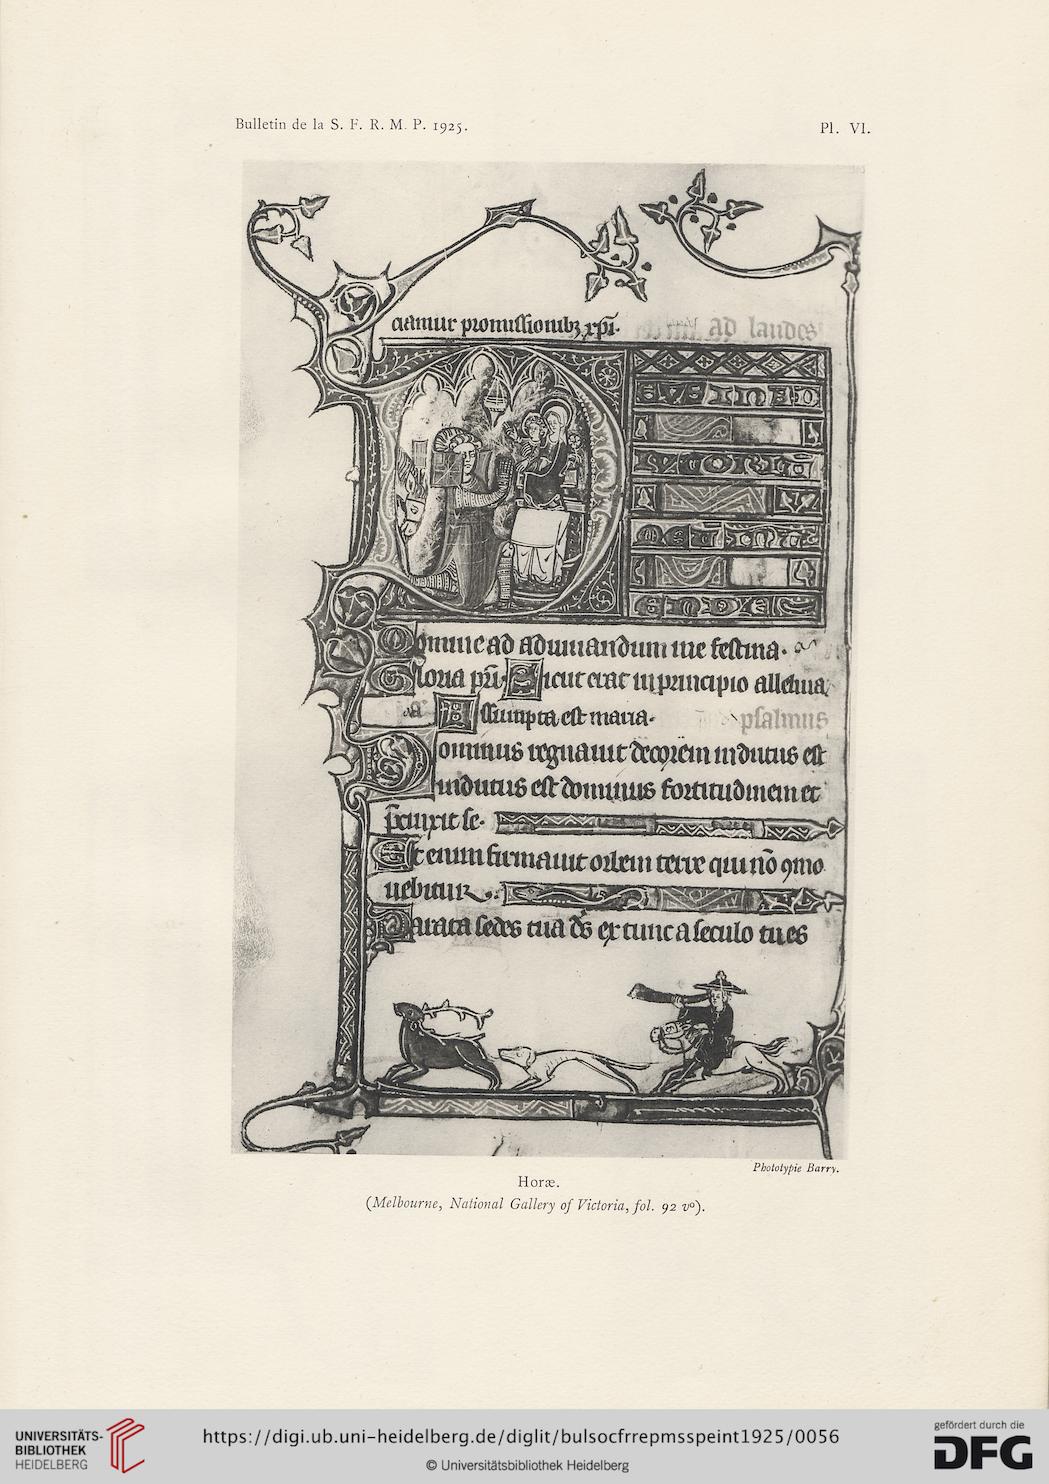 Bulletin de la S. F. R. M. P. 1925.
Pl. VI.
ciamur promissionibz xpi.
ad laudes
eus in
adiutoriu
meu inte
Domine ad adiuuandum me festina.
Gloria pri Sicut erat in principio alleluia
aa Assumpta est maria.
psalmus
Dominus regnauit decorem indutus est
indutus est dominus fortitudinem et
precinxit se.
Et enim firmauit orbem terre qui no 9mo
uebitur.
Parata sedes tua ds ex tunc a seculo tu es
Phototypie Barry.
Horæ.
(Melbourne, National Gallery of Victoria, fol. 92 vº).
UNIVERSITÄTS-
BIBLIOTHEK
HEIDELBERG
https://digi.ub.uni-heidelberg.de/diglit/bulsocfrrepmsspeint1925/0056
© Universitätsbibliothek Heidelberg
gefördert durch die
DFG